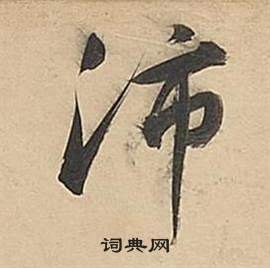 沛
词典网